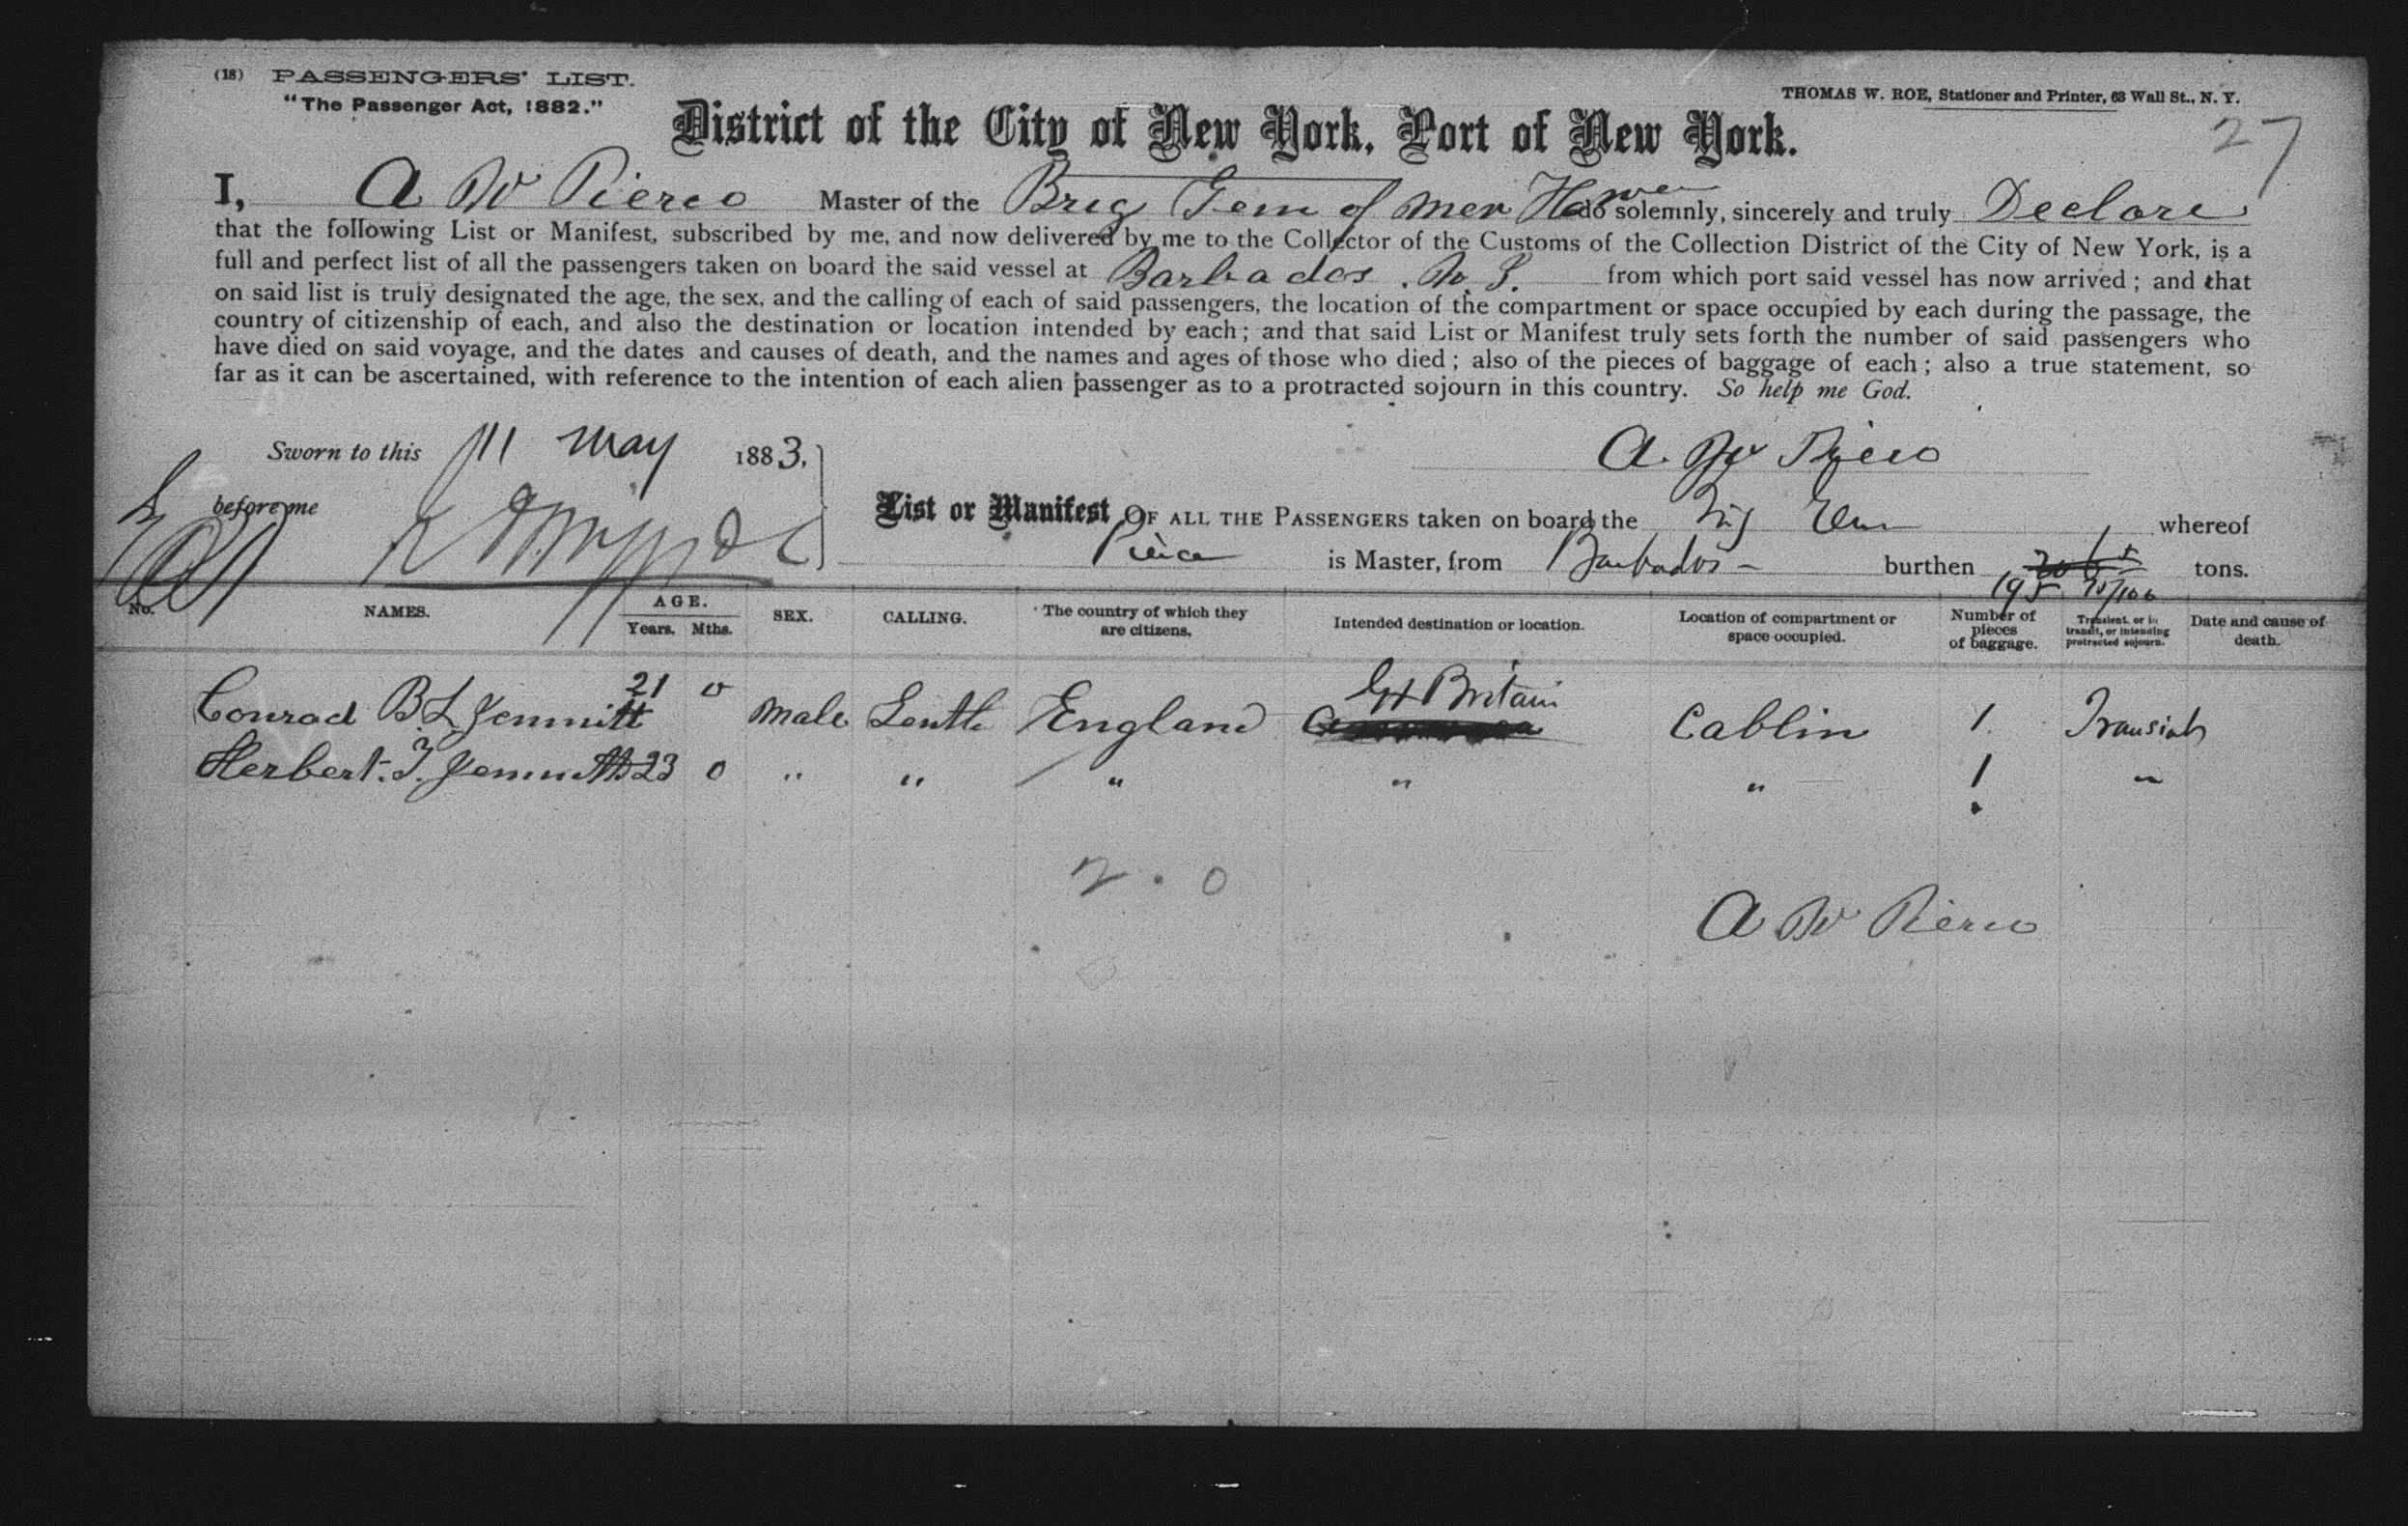 (18) PASSENGERS' LIST.
"The Passenger Act, 1882."
THOMAS W. ROE, Stationer and Printer, 63 Wall St., N. Y.
27
District of the City of New York, Port of New York.
I, A W Pierce Master of the Brig Gem of do solemnly, sincerely and truly Declare
that the following List or Manifest, subscribed by me, and now delivered by me to the Collector of the Customs of the Collection District of the City of New York, is a
full and perfect list of all the passengers taken on board the said vessel at Barbados. W. I. from which port said vessel has now arrived; and that
on said list is truly designated the age, the sex, and the calling of each of said passengers, the location of the compartment or space occupied by each during the passage, the
country of citizenship of each, and also the destination or location intended by each; and that said List or Manifest truly sets forth the number of said passengers who
have died on said voyage, and the dates and causes of death, and the names and ages of those who died; also of the pieces of baggage of each; also a true statement, so
far as it can be ascertained, with reference to the intention of each alien passenger as to a protracted sojourn in this country. So help me God.
Sworn to this 11 May 1883,
A. W Pierce
before me
List or Manifest OF ALL THE PASSENGERS taken on board the Brig whereof
Pierce is Master, from Barbados - burthen tons.
195 70/100
No. NAMES. AGE. Years. Mths. SEX. CALLING. The country of which they are citizens. Intended destination or location. Location of compartment or space occupied. Number of pieces of baggage. Transient, or in transit, or intending protracted sojourn. Date and cause of death.
Conrad B L Jemmitt 21 0 Male England Gt Britain Cablin 1 Transient
Herbert. T. Jemmitt 23 0 " " " " " 1 "
2 . 0
A W Pierce